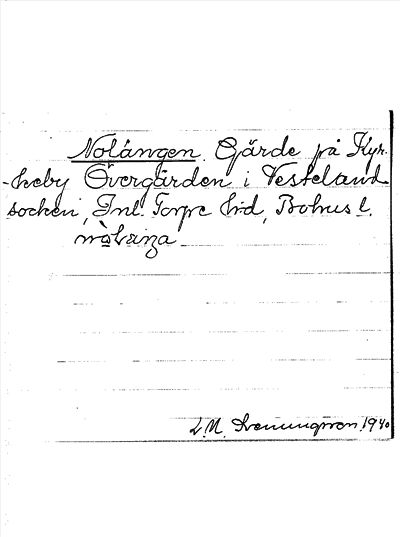 Nolängen. Gärde på Kyr-
-keby Övergården i Vesteland
socken, Inl. Torpe hd, Bohus l.
L.N. Svenungsson. 1940